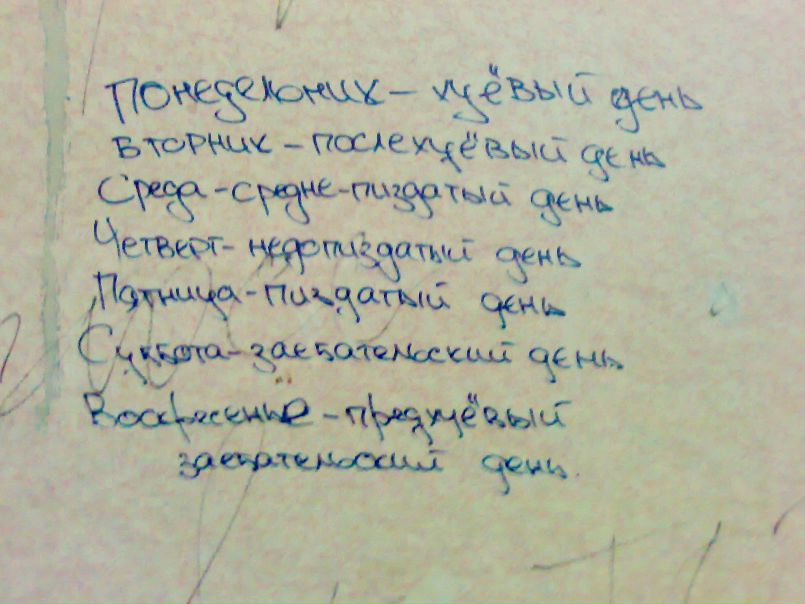 Понедельник - хуёвый день
Вторник - послехуёвый день
Среда - средне-пиздатый день
Четверг - недопиздатый день
Пятница - пиздатый день
Суббота - заебательский день
Воскресенье - предхуёвый
заебательский день.